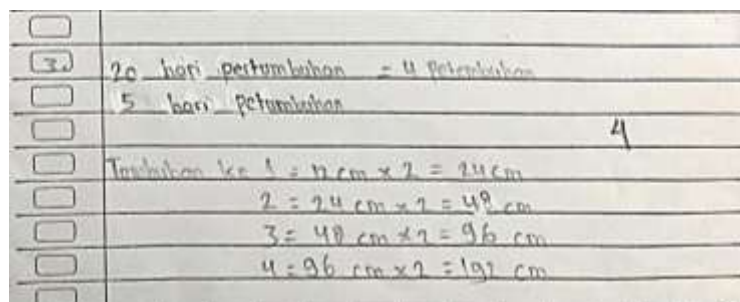 3. 20 hari pertumbuhan = 4 Petumbuhan
5 hari petumbuhan
4
Tambuhan ke 1 = 12 cm x 2 = 24 cm
2 = 24 cm x 2 = 48 cm
3 = 48 cm x 2 = 96 cm
4 = 96 cm x 2 = 192 cm